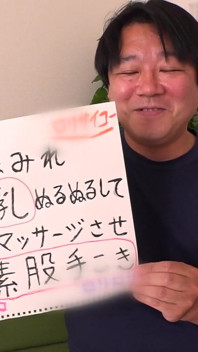 まみれ
乳ぬるぬるして
マッサージさせ
素股手こき